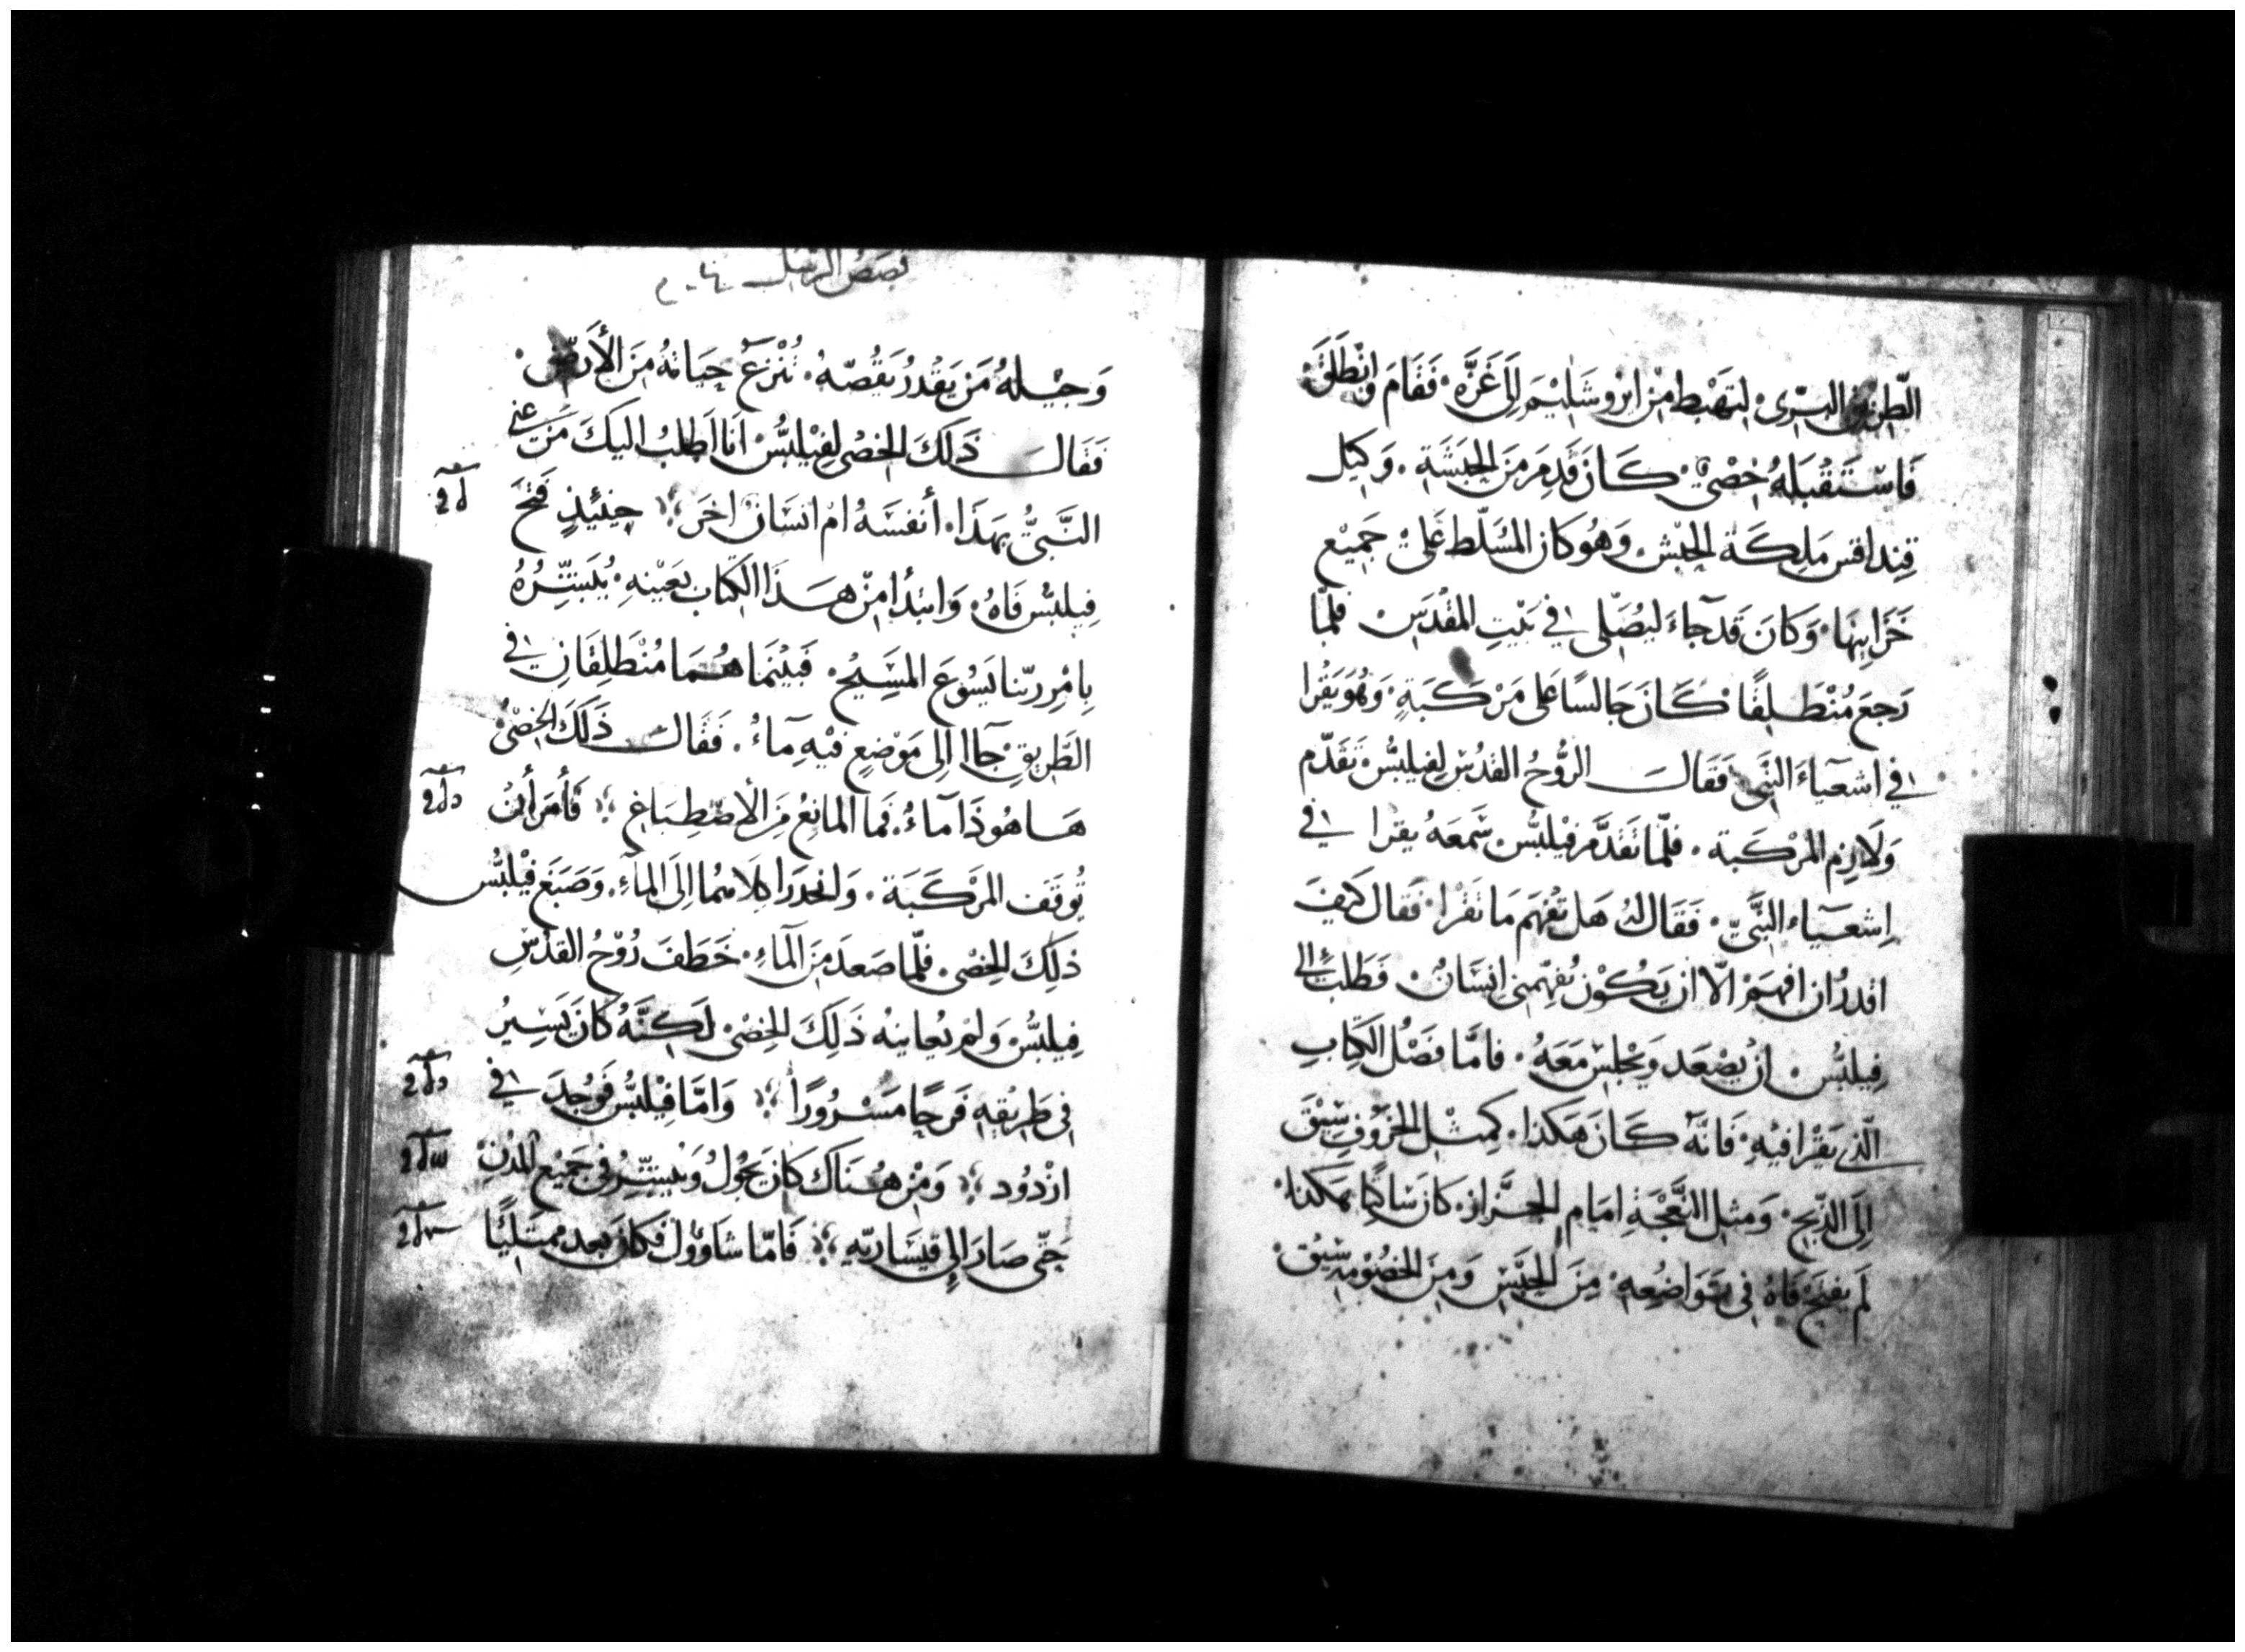 الطريق البرى. لتهبط من اوروشليم الى غزه. فقام وانطلق.
فاستقبله خصى. كان قدم من الحبشة. وكيل
قنداقس ملكة الحبش. وهو كان المسلط على جميع
خزاينها. وكان قد جاء ليصلى فى بيت المقدس. فلما
رجع منطلقا. كان جالسا على مركبة. وهو يقرا
فى اشعياء النبى. فقال الروح القدس لفيلبس. تقدم
ولازم المركبة. فلما تقدم فيلبس. سمعه يقرا فى
اشعياء النبى. فقال له هل تفهم ما تقرا. فقال كيف
اقدر ان افهم الا ان يكون يفهمنى انسان. فطلب الى
فيلبس. ان يصعد ويجلس معه. فاما فصل الكتاب
الذى يقرا فيه. فانه كان هكذا. كمثل الخروف سيق
الى الذبح. ومثل النعجة امام الجزاز. كان ساكتا هكذا.
لم يفتح فاه فى تواضعه. من الحبس ومن الخصومه سيق.
قصص الرسل
وجيله من يقدر يقصه. تنزع حياته من الأرض.
فقال ذلك الخصى لفيلبس انا اطلب اليك من عنى
النبى بهذا. أنفسه ام انسان اخر. حينئذ فتح
فيلبس فاه. وابتدأ من هذا الكتاب بعينه. يبشره
بامر ربنا يسوع المسيح. فبينما هما منطلقان فى
الطريق جاا الى موضع فيه ماء. فقال ذلك الخصى
ها هوذا ماء. فما المانع من الاصطباغ. فأمر أن
توقف المركبة. وانحدرا كلاهما الى الماء. وصبغ فيلبس
ذلك الخصى. فلما صعد من الماء. خطف روح القدس
فيلبس ولم يعاينه ذلك الخصى لكنه كان يسير
فى طريقه فرحا مسرورا. واما فيلبس فوجد فى
ازدود. ومن هناك كان يجول ويبشر فى جميع المدن
حتى صار الى قيساريه. فاما شاوول فكان بعد ممتلئا